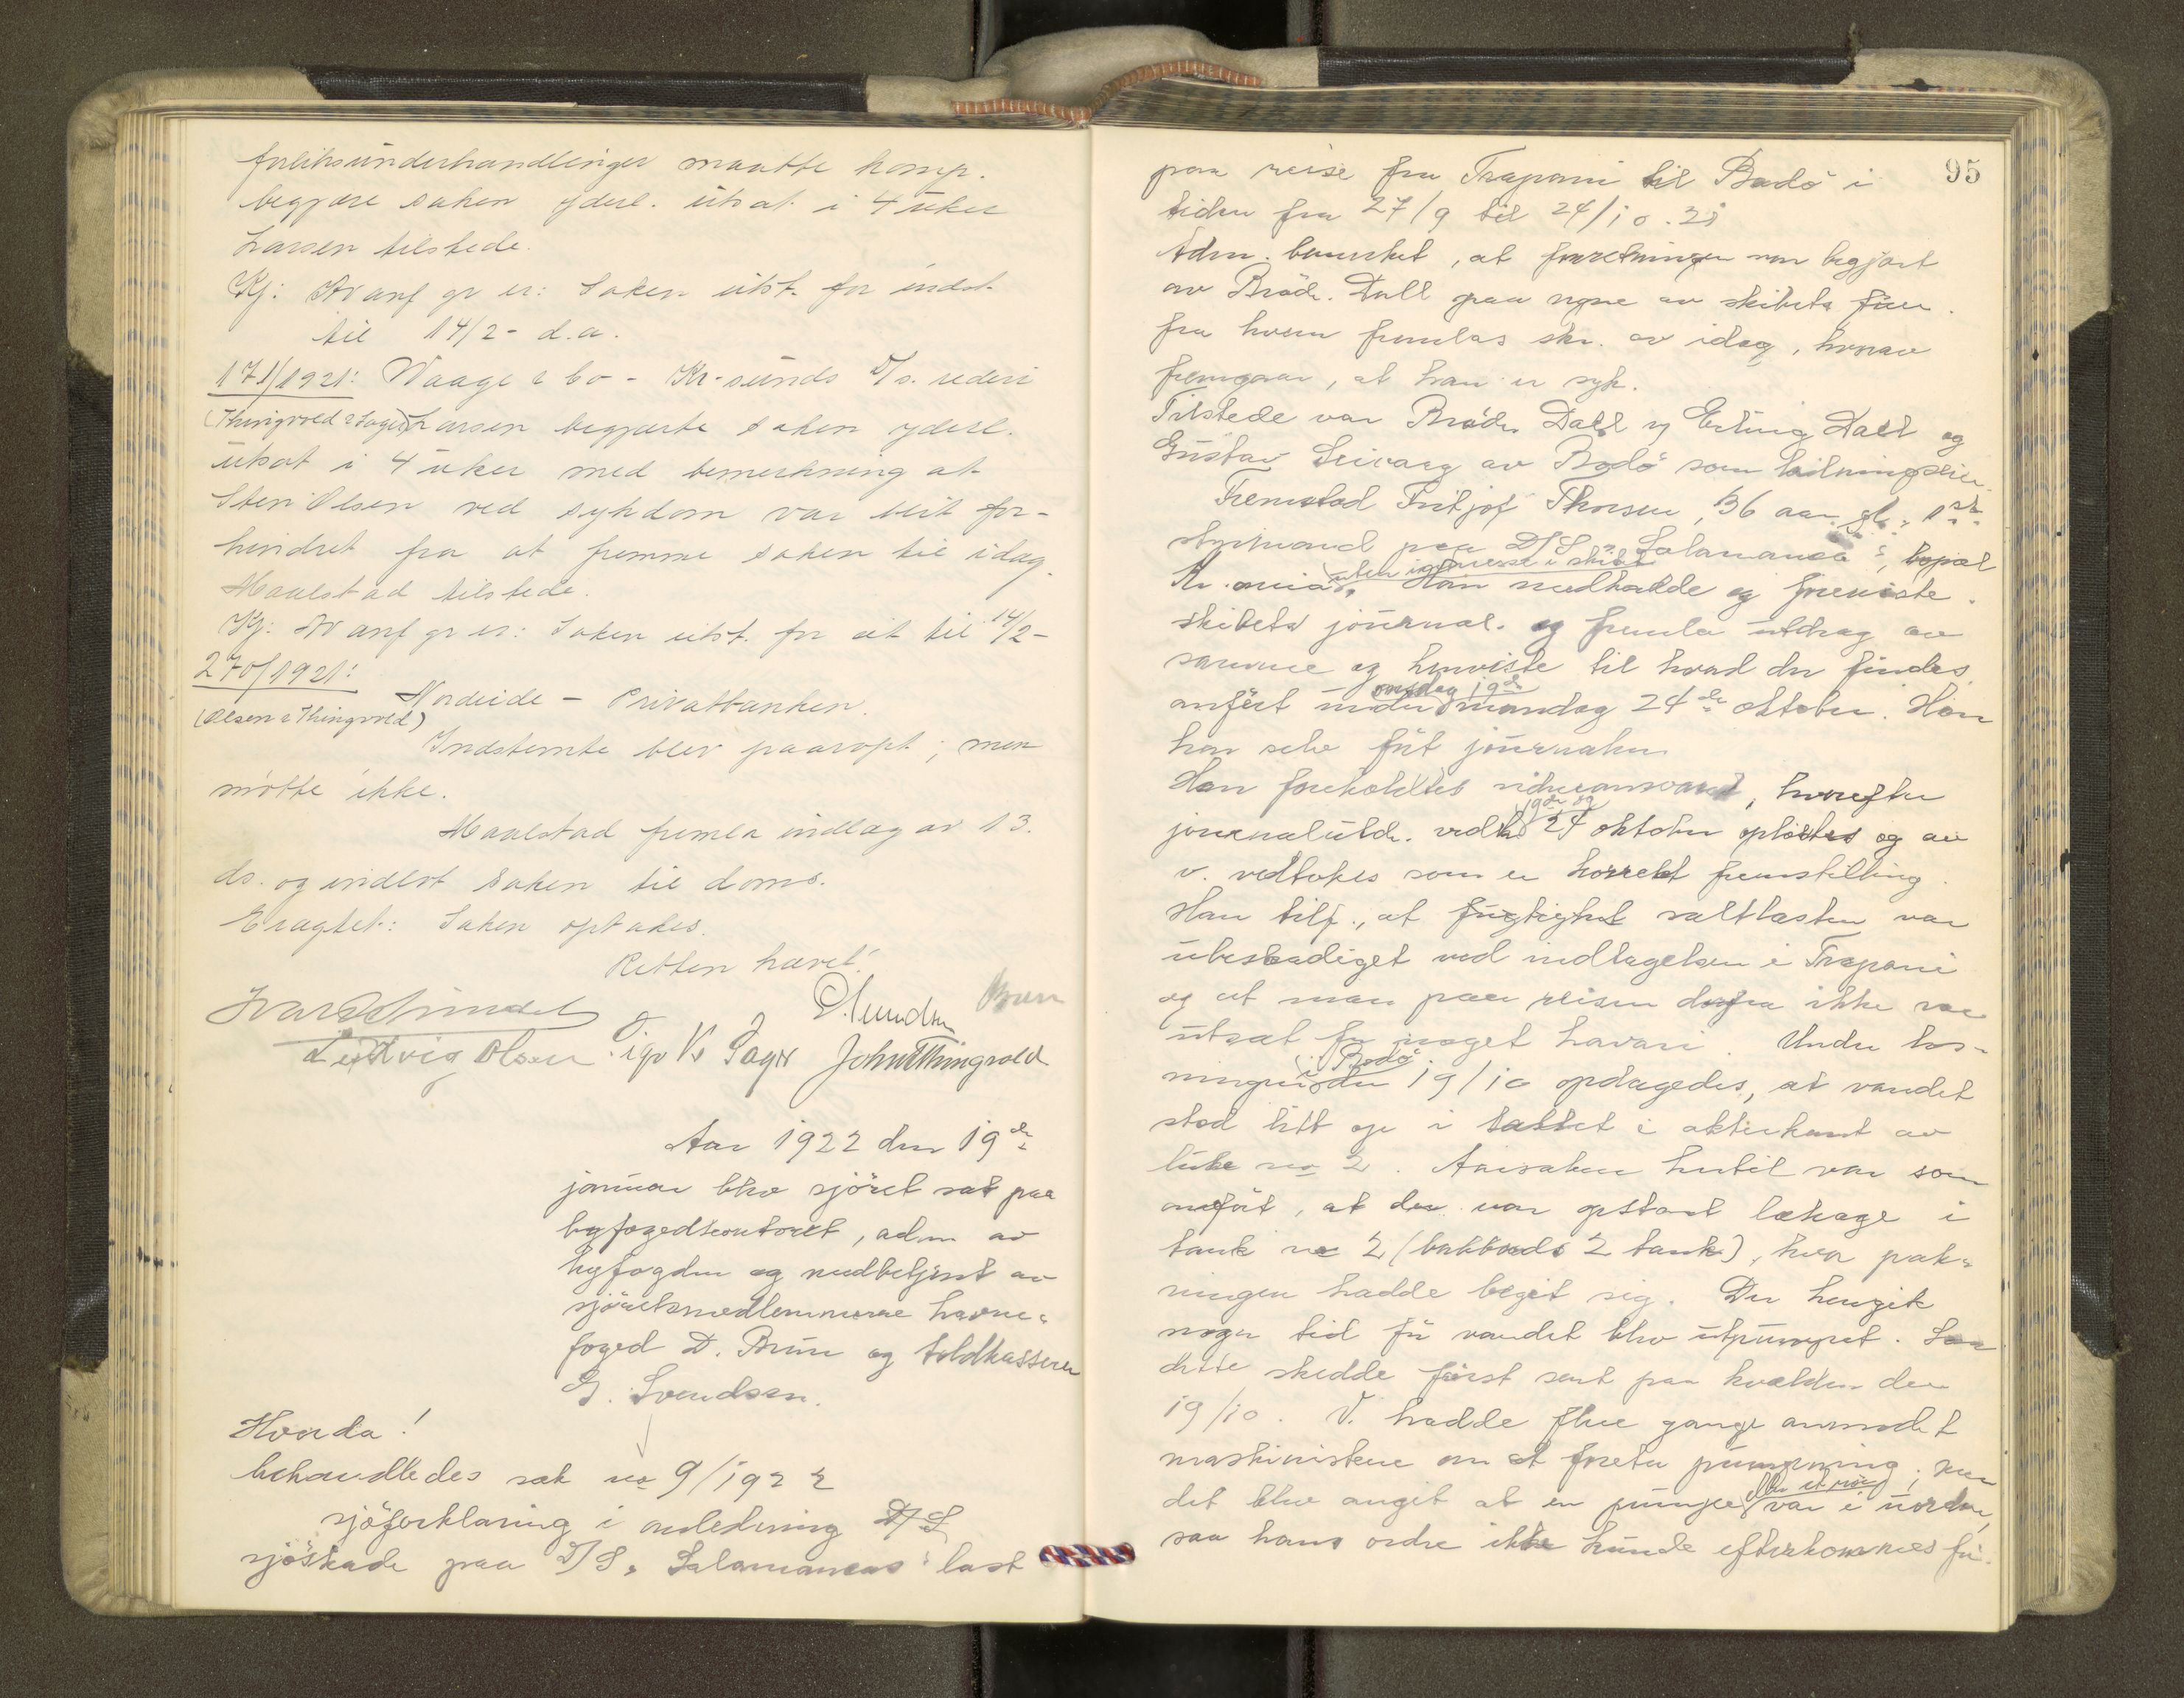 forliksunderhandlinger maatte komp.
begjære saken yderl. utsat i 4 uker
Larsen tilstede.
Kj: Av anf gr er: Saken utst. for indst.
til 14/2 - d.a.
171/1921: Waage & Co - Kr.sunds D/s. rederi
(Thingvold & Sager) Larsen begjærte saken yderl.
utsat i 4 uker med bemerkning at
Sten Olsen ved sykdom var blit for-
hindret fra at fremme saken til idag.
Maalstad tilstede.
Kj: Av anf gr er: Saken utst. for sit til 14/2-
270/1921:
Nordeide - Privatbanken.
(Olsen & Thingvold)
Indstemte blev paaropt; men
møtte ikke.
Maalstad fremla indlæg av 13.
ds. og indlot saken til doms.
Eragtet: Saken optakes.
Retten hævet!
Ludvig Olsen John Thingvold
Aar 1922 den 19de
januar blev sjöret sat paa
byfogedkontoret, adm av
byfogden og medbetjent av
sjöretsmedlemmerne havne-
foged D. Brun og toldkasserer
G. Svendsen.
Hvorda!
behandledes sak no 9/1922
sjöforklaring i anledning D/S
sjöskade paa D/S "Salamancas" last
95
paa reise fra Trapani til Bodö i
tiden fra 27/9 til 24/10. 21
Adm. bemerket, at forretningen var begjært
av Brödr. Dall paa vegne av skibets förer.
fra hvem fremlas skr. av idag, hvorav
fremgaar, at han er syk.
Tilstede var Brödr. Dall v/ Erling Dall og
Gustav av Bodö som
Fremstod Fritjof Thorsen, 36 aar gl., 1ste
styrmand paa D/S "Salamanca", bopæl
uten interesse i skibet
Kr.ania. Han medhadde og foreviste
skibets journal. og fremla utdrag av
samme og henviste til hvad der findes
onsdag 19de
anfört under mandag 24de oktober. Han
har selv fört journalen
Han foreholdtes vidneansvaret, hvorefter
19de og
journalutdr. vedk. 24 oktober oplæstes og av
v. vedtokes som en korrekt fremstilling.
Han tilf., at fugtighet saltlasten var
ubeskadiget ved indtagelsen i Trapani
og at man paa reisen derfra ikke var
utsat for noget havari. Under los-
i Bodö
ningen den 19/10 opdagedes, at vandet
stod litt op i saltet i akterkant av
luke no 2. Aarsaken hertil var som
anfört, at der var opstaat lækage i
tank no 2 (babbords 2 tank), hvor pak-
ningen hadde begit sig. Der hengik
nogen tid för vandet blev utpumpet. Saa
dette skedde först sent paa kvælden den
19/10. V. hadde flere gange anmodet
maskinistene om at foreta pumpning; men
eller et rör
det blev angit at en pumpe var i uorden,
saa hans ordre ikke kunde efterkommes för.